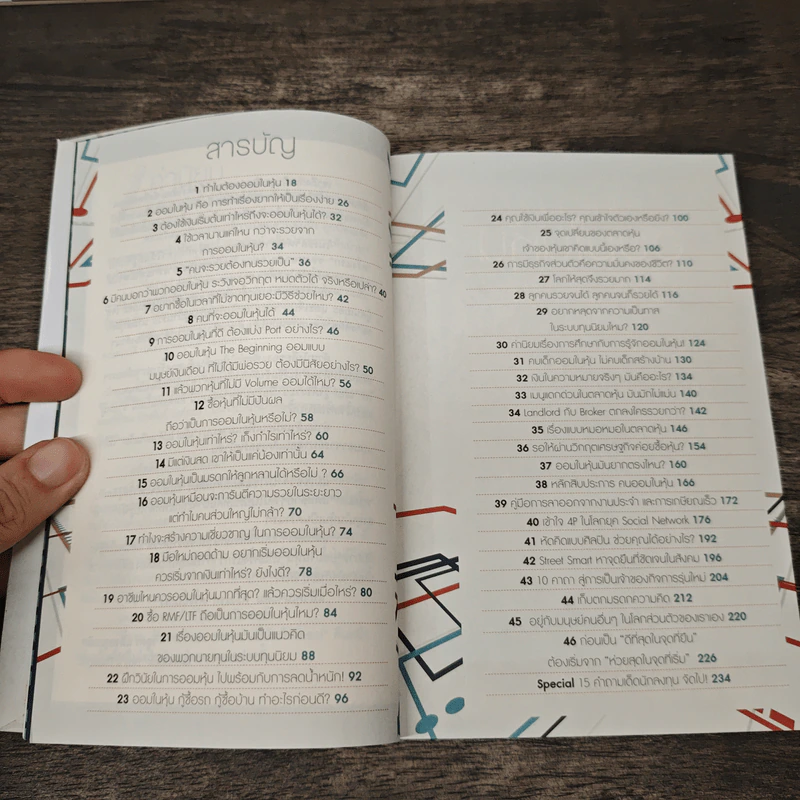 สารบัญ
1 ทำไมต้องออมในหุ้น 18
2 ออมในหุ้น คือ การทำเรื่องยากให้เป็นเรื่องง่าย 26
3 ต้องใช้เงินเริ่มต้นเท่าไหร่ถึงจะออมในหุ้นได้? 32
4 ใช้เวลานานแค่ไหน กว่าจะรวยจาก
การออมในหุ้น? 34
5 "คนจะรวยต้องทนรวยเป็น" 36
6 มีคนบอกว่าพวกออมในหุ้น ระวังเจอวิกฤต หมดตัวได้ จริงหรือเปล่า? 40
7 อยากซื้อในเวลาที่ไม่ขาดทุนเยอะมีวิธีช่วยไหม? 42
8 คนที่จะออมในหุ้นได้ 44
9 การออมในหุ้นที่ดี ต้องแบ่ง Port อย่างไร? 46
10 ออมในหุ้น The Beginning ออมแบบ
มนุษย์เงินเดือน ที่ไม่ได้มีพ่อรวย ต้องมีนิสัยอย่างไร? 50
11 แล้วพวกหุ้นที่ไม่มี Volume ออมได้ไหม? 56
12 ซื้อหุ้นที่ไม่มีปันผล
ถือว่าเป็นการออมในหุ้นหรือไม่? 58
13 ออมในหุ้นเท่าไหร่? เก็งกำไรเท่าไหร่? 60
14 มีแต่เงินสด เขาให้เป็นแค่น้องเท่านั้น 64
15 ออมในหุ้นเป็นมรดกให้ลูกหลานได้หรือไม่ ? 66
16 ออมหุ้นเหมือนจะการันตีความรวยในระยะยาว
แต่ทำไมคนส่วนใหญ่ไม่กล้า? 70
17 ทำไงจะสร้างความเชี่ยวชาญ ในการออมในหุ้น? 74
18 มือใหม่ถอดด้าม อยากเริ่มออมในหุ้น
ควรเริ่มจากเงินเท่าไหร่? ยังไงดี? 78
19 อาชีพไหนควรออมในหุ้นมากที่สุด? แล้วควรเริ่มเมื่อไหร่? 80
20 ซื้อ RMF/LTF ถือเป็นการออมในหุ้นไหม? 84
21 เรื่องออมในหุ้นมันเป็นแนวคิด
ของพวกนายทุนในระบบทุนนิยม 88
22 ฝึกวินัยในการออมหุ้น ไปพร้อมกับการลดน้ำหนัก! 92
23 ออมในหุ้น กู้ซื้อรถ กู้ซื้อบ้าน ทำอะไรก่อนดี? 96
24 คุณใช้เงินเพื่ออะไร? คุณเข้าใจตัวเองหรือยัง? 100
25 จุดเปลี่ยนของตลาดหุ้น
เจ้าของหุ้นเขาคิดแบบนี้เองหรือ? 106
26 การมีธุรกิจส่วนตัวคือความมั่นคงของชีวิต? 110
27 โลกให้สุดจึงรวยมาก 114
28 ลูกคนรวยจนได้ ลูกคนจนก็รวยได้ 116
29 อยากหลุดจากความเป็นทาส
ในระบบทุนนิยมไหม? 120
30 ค่านิยมเรื่องการศึกษากับการรู้จักออมในหุ้น! 124
31 คนเด็กออมในหุ้น ไม่คนเด็กสร้างบ้าน 130
32 เงินในความหมายจริงๆ มันคืออะไร? 134
33 เมนูแดกด่วนในตลาดหุ้น มันมักไม่แม่น 140
34 Landlord กับ Broker ตกลงใครรวยกว่า? 142
35 เรื่องแบบหมอหมอในตลาดหุ้น 146
36 รอให้ผ่านวิกฤตเศรษฐกิจค่อยซื้อหุ้น? 154
37 ออมในหุ้นมันยากตรงไหน? 160
38 หลักสิบประการ คนออมในหุ้น 166
39 คู่มือการลาออกจากงานประจำ และการเกษียณเร็ว 172
40 เข้าใจ 4P ในโลกยุค Social Network 176
41 หัดคิดแบบศิลปิน ช่วยคุณได้อย่างไร? 192
42 Street Smart หาจุดยืนที่ชัดเจนในสังคม 196
43 10 คาถา สู่การเป็นเจ้าของกิจการรุ่นใหม่ 204
44 เก็บตกมรดกความคิด 212
45 อยู่กับมนุษย์คนอื่นๆ ในโลกส่วนตัวของเราเอง 220
46 ก่อนเป็น "ดีที่สุดในจุดที่ยืน"
ต้องเริ่มจาก "ห่วยสุดในจุดที่เริ่ม" 226
Special 15 คำถามเด็ดนักลงทุน จัดไป! 234